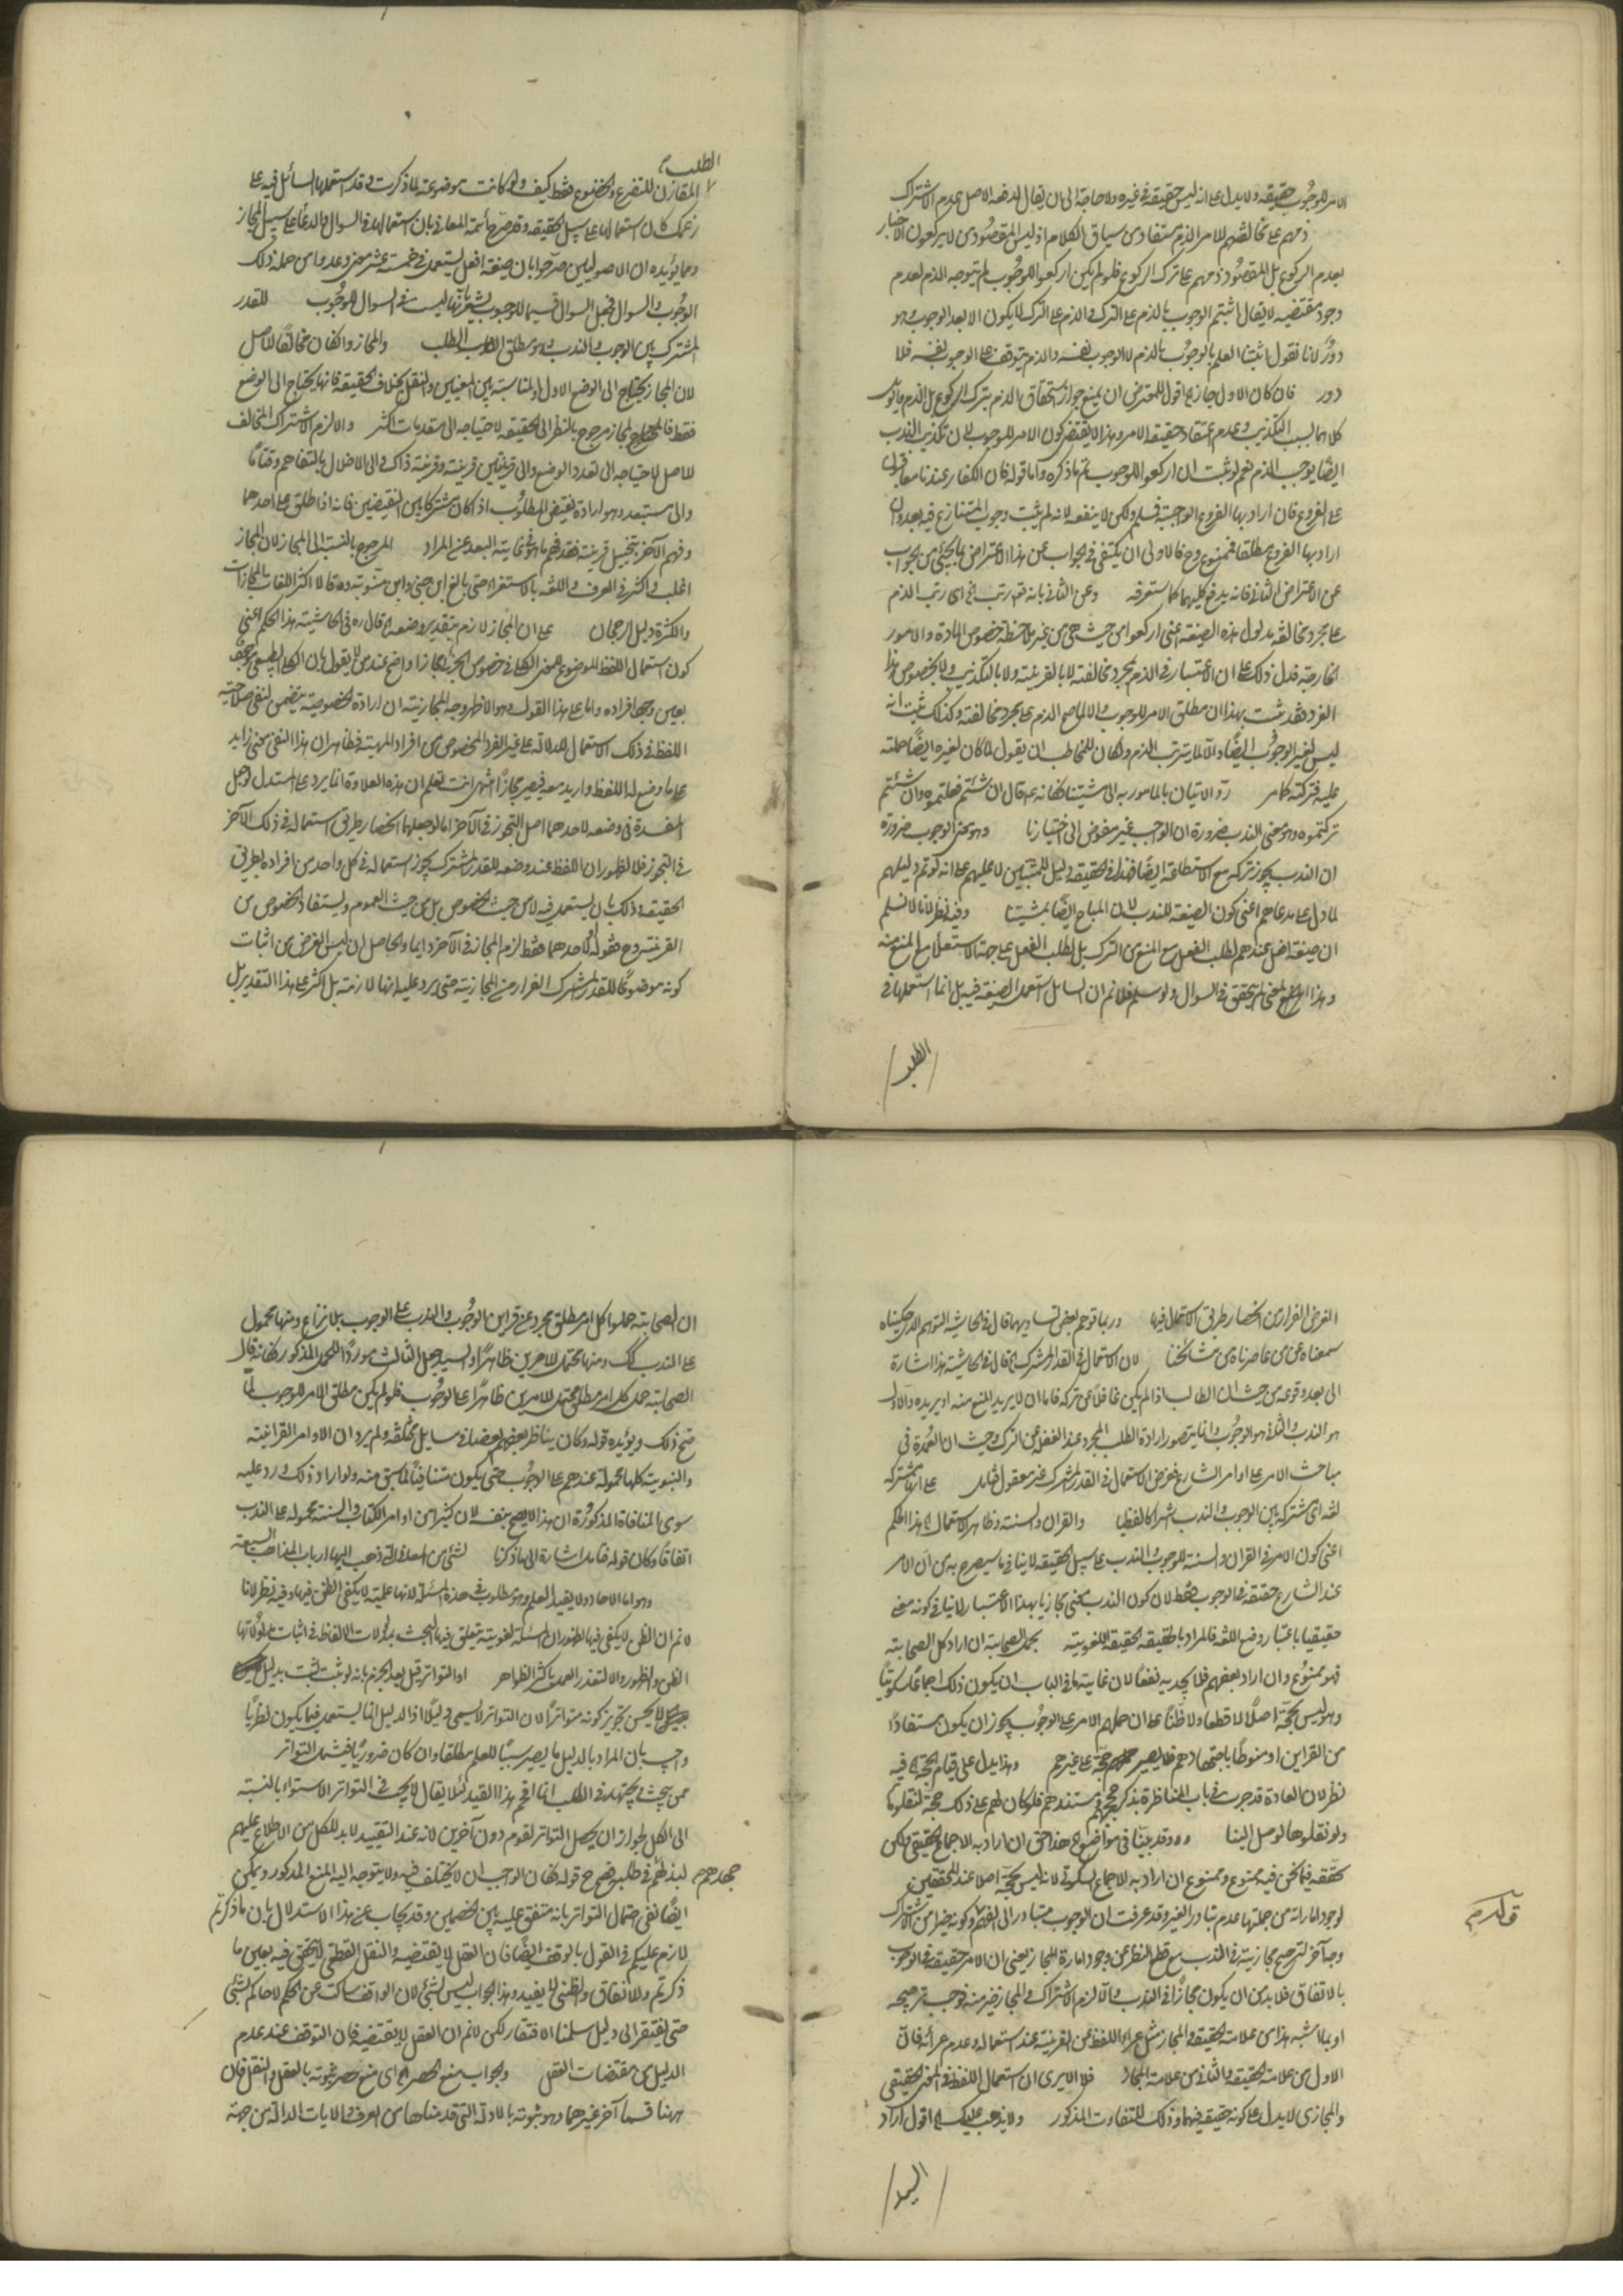 الامر للوجوب حقيقة ولا يدل على انه ليس حقيقة في غيره ولا حاجة الى ان يقال لدفعه الاصل عدم الاشتراك
ذمهم على مخالفتهم للامر الذم مستفاد من سياق الكلام اذ ليس المقصود من لا يركعون الاخبار
بعدم الركوع بل المقصود ذمهم على ترك الركوع فلو لم يكن اركعوا للوجوب لم يتوجه الذم لعدم
وجود مقتضيه لا يقال اثبتم الوجوب بالذم على الترك والذم على الترك لا يكون الا بعد الوجوب وهو
دور لانا نقول اثبتنا العلم بالوجوب بالذم لا الوجوب نفسه والذم يتوقف على الوجوب نفسه فلا
دور فان كان الاول جاز اقول للمعترض ان يمنع جواز استحقاق الذم بترك الركوع بل الذم
كلاهما بسبب التكذيب وعدم اعتقاد حقيقة الامر وهذا لا يقتضي كون الامر للوجوب لان تكذيب الندب
ايضا يوجب الذم نعم لو ثبت ان اركعوا للوجوب تم ما ذكره واما قوله فان الكفار عندنا معاقبون
على الفروع فان اراد بها الفروع الواجبة فمسلم ولكن لا ينفعه لانه لم يثبت وجوب المتنازع فيه بعد وان
اراد بها الفروع مطلقا فممنوع وح فالاولى ان يكتفى في الجواب عن هذا الاعتراض بما يجئ من الجواب
عن الاعتراض الثاني فانه يدفع كليهما كما ستعرفه وعن الثاني بانه تم رتب الخ اى رتب الذم
على مجرد مخالفة مدلول هذه الصيغة اعنى اركعوا من حيث هي من غير ملاحظة خصوص المادة والامور
الخارجة فدل ذلك على ان الاعتبار في الذم بمجرد مخالفته لا بالقرينة ولا بالتكذيب ولا بخصوص هذا
الفرد فقد ثبت بهذا ان مطلق الامر للوجوب والا لما صح الذم على مجرد مخالفته وكذلك ثبت انه
ليس لغير الوجوب ايضا والا لما يترتب الذم ولكان للمخاطب ان يقول لما كان لغيره ايضا حملته
عليه فتركته كما مر رد الاتيان بالمامور به الى مشيتنا فكانه عم قال ان شئتم فعلتموه وان شئتم
تركتموه وهو معنى الندب ضرورة ان الواجب غير مفوض الى اختيارنا وهو معنى الوجوب ضرورة
ان الندب يجوز تركه مع الاستطاعة ايضا فهذا في الحقيقة دليل للمثبتين لا عليهم على انه لو تم دليلهم
لما دل على مدعاهم اعنى كون الصيغة للندب لان المباح ايضا بمشيتنا وفيه نظر لانا لا نسلم
ان صيغة افعل عندهم لطلب الفعل مع المنع من الترك بل لطلب الفعل على جهة الاستعلاء مع المنع منه
وهذا المعنى لم يتحقق في السوال ولو سلم فلا نم ان السايل استعمل الصيغة فيه بل انما استعملها في
الطلب
الطلب
المقارن للتضرع والخضوع فقط كيف ولو كانت موضوعة لما ذكرت وقد استعملها السائل فيه على
زعمك كان استعمالها على سبيل الحقيقة وقد صرح ائمة المعاني بان استعمالها في السوال والدعاء على سبيل المجاز
ومما يؤيده ان الاصوليين صرحوا بان صيغة افعل يستعمل في خمسة عشر معنى وعدوا من جملة ذلك
الوجوب والسوال فجعل السوال قسيما للوجوب يشعر بانها ليست في السوال للوجوب للقدر
المشترك بين الوجوب والندب وهو مطلق الطلب والمجاز وان كان مخالفا للاصل
لان المجاز يحتاج الى الوضع الاول والمناسبة بين المعنيين والنقل بخلاف الحقيقة فانها يحتاج الى الوضع
فقط فالمجاز مرجوح بالنظر الى الحقيقة لاحتياجه الى مقدمات اكثر والا لزم الاشتراك المخالف
للاصل لاحتياجه الى تعدد الوضع والى قرينتين قرينة وقرينة ذاك والى الاخلال بالتفاهم وقتا ما
والى مستبعد وهو ارادة نقيض المطلوب اذا كان مشتركا بين النقيضين فانه اذا طلق على احدهما
وفهم الآخر بتخييل قرينة فقد فهم ما هو في غاية البعد عن المراد المرجوح بالنسبة الى المجاز لان المجاز
اغلب واكثر في العرف واللغة بالاستقراء حتى بالغ ابن جني وابن متويه وقالا اكثر اللغات مجازات
والكثرة دليل الرجحان على ان المجاز لازم بتقدير وضعه الخ قال ره في الحاشية هذا الحكم اعنى
كون استعمال اللفظ الموضوع للمعنى الكلى في خصوص الجزئى مجازا واضح عند من لا يقول بان الكلى الطبيعى موجود
بعين وجود افراده واما على هذا القول وهو الاظهر وجه المجازية ان ارادة الخصوصية يتضمن لنفى صلاحية
اللفظ في ذلك الاستعمال للدلالة على غير الفرد المخصوص من افراد المهية فظاهر ان هذا النفى معنى زايد
على ما وضع له اللفظ واريد معه فيصير مجازا انتهى وانت تعلم ان هذه العلاوة انما يرد على المستدل لو جعل
المفسدة في وضعه لاحدهما اصل التجوز في الآخر اما لو جعلها انحصار طريق استعماله في ذلك الآخر
في التجوز فلا لظهور ان اللفظ عند وضعه للقدر المشترك يجوز استعماله في كل واحد من افراده بطريق
الحقيقة وذلك بان يستعمل فيه لا من حيث الخصوص بل من حيث العموم ويستفاد الخصوص من
القرينة وح فقوله لاحدهما فقط لزم المجاز في الآخر دايما والحاصل ان ليس الغرض من اثبات
كونه موضوعا للقدر المشترك الفرار من المجازية حتى يرد عليه انها لازمة بل اكثر على هذا التقدير بل
الغرض الفرار من انحصار طريق الاستعمال فيها وربما توهم بعض تساويهما قال في الحاشية التوهم الذى حكيناه
سمعناه عن من عاصرناه من مشائخنا لان الاستعمال في القدر المشترك الخ قال في الحاشية هذا اشارة
الى بعد وقوعه من حيث ان الطالب اذا لم يكن غافلا عن تركه فاما ان لا يريد المنع منه او يريده والاول
هو الندب والثاني هو الوجوب وانما يتصور ارادة الطلب المجرد عند الغفلة عن الترك وحيث ان العمدة في
مباحث الامر على اوامر الشارع ففرض الاستعمال في القدر المشترك غير معقول فتامل على انها مشتركة
لغة اى مشتركة بين الوجوب والندب اشتراكا لفظيا والقران والسنة وظاهر الاستعمال الخ هذا الحكم
اعنى كون الامر في القران والسنة للوجوب والندب على سبيل الحقيقة لا ينافى ما سيصرح به من ان الامر
عند الشارع حقيقة في الوجوب فقط لان كون الندب معنى مجازيا بهذا الاعتبار لا ينافى كونه معنى
حقيقيا باعتبار وضع اللغة فالمراد بالحقيقة الحقيقة اللغوية بحمل الصحابة ان اراد كل الصحابة
فهو ممنوع وان اراد بعضهم فلا يجديه نفعا لان غاية ما في الباب ان يكون ذلك اجماعا سكوتيا
وهو ليس بحجة اصلا لا قطعا ولا ظنا على ان حملهم الامر على الوجوب يجوز ان يكون مستفادا
من القراين او منوطا باجتهادهم فلا يصير حجة على غيرهم وهذا يدل على قيام الحجة الخ فيه
نظر لان العادة قد جرت في باب المناظرة بذكر حججهم ومستندهم فلو كان لهم على ذلك حجة لنقلوها
ولو نقلوها لوصل الينا وقد بينا في مواضع الخ هذا حق ان اراد به الاجماع الحقيقى ولكن
تحققه فيما نحن فيه ممنوع وممنوع ان اراد به الاجماع السكوتى لانه ليس بحجة اصلا عند المحققين
لوجود امارته من جملتها عدم تبادر الغير وقد عرفت ان الوجوب متبادر الى الفهم وكونه خيرا من الاشتراك
قولهم
وجه آخر لترجيح مجازيته في الندب مع قطع النظر عن وجود امارة المجاز يعنى ان الامر حقيقة في الوجوب
بالاتفاق فلا بد من ان يكون مجازا في الندب والا لزم الاشتراك والمجاز خير منه فوجب ترجيحه
او بما اشبه هذا من علامة الحقيقة والمجاز مثل عراء اللفظ عن القرينة عند استعماله وعدم عرائه فان
الاول من علامة الحقيقة والثانى من علامة المجاز فلا لا يرى ان استعمال اللفظ في المعنى الحقيقى
والمجازى لا يدل على كونه حقيقة فيهما وذلك للتفاوت المذكور ولا يذهب عليك الخ اقول اراد
السيد
ان الصحابة حملوا كل امر مطلق مجرد عن قراين الوجوب والندب على الوجوب بلا نزاع ومنها محمول
على الندب كك ومنها محتمل للامرين ظاهرا والسيد جعل الثالث موردا للحمل المذكور فكانه قال
الصحابة حمل كل امر مطلق محتمل للامرين ظاهرا على الوجوب فلو لم يكن مطلق الامر للوجوب لما
صح ذلك ويؤيده قوله وكان يناظر بعضهم بعضا في مسايل مختلفة ولم يرد ان الاوامر القرانية
والنبوية كلها محمولة عندهم على الوجوب حتى يكون متنافيا لما سبق منه ولو اراد ذلك ورد عليه
سوى المنافاة المذكورة ان هذا لا يصح بنفسه لان كثيرا من اوامر الكتاب والسنة محمولة على الندب
اتفاقا وكان قوله فتامل اشارة الى ما ذكرنا لشئ من المعانى التى ذهب اليها ارباب المذاهب السبعة
وهو اما الاحاد ولا يفيد العلم وهو مطلوب في هذه المسئلة لانها علمية لا يكفى الظن فيها وفيه نظر لانا
لا نم ان الظن لا يكفى فيها لظهور ان المسئلة لغوية يتعلق فيها البحث بمدلولات الالفاظ في اثبات مدلولاتها
الظن والظهور والا لتعذر العمل باكثر الظاهر او التواتر قيل بعد الجزم بانه لو ثبت لثبت بدليل
لا يحسن تجويز كونه متواترا لان التواتر لا يسمى دليلا اذ الدليل انما يستعمل فيما يكون نظريا
واجيب بان المراد بالدليل ما يصير سببا للعلم مطلقا وان كان ضروريا فيشمل التواتر
ممن يبحث ويجتهد في الطلب انما اقحم هذا القيد لئلا يقال لا يجب في التواتر الاستواء بالنسبة
الى الكل لجواز ان يحصل التواتر لقوم دون آخرين لانه عند التقييد لابد للكل من الاطلاع عليهم
جهدهم
لبذلهم في طلبه فصح ح قوله فكان الواجب ان لا يختلف فيه ولا يتوجه اليه المنع المذكور ويمكن
ايضا نفى احتمال التواتر بانه متفق عليه بين الخصمين وقد يجاب عن هذا الاستدلال بان ما ذكرتم
لازم عليكم في القول بالوقف ايضا فان العقل لا يقتضيه والنقل القطعى لا يتحقق فيه بعين ما
ذكرتم وللاتفاق والظنى لا يفيد وهذا الجواب ليس بشئ لان الواقف ساكت عن الحكم لا حاكم بشئ
حتى يفتقر الى دليل سلمنا الافتقار لكن لا نم ان العقل لا يقتضيه فان التوقف عند عدم
الدليل من مقتضيات العقل والجواب منع الحصر الخ اى منع حصر ثبوته بالعقل والنقل فان
ههنا قسما آخر غيرهما وهو ثبوته بالادلة التى قدمناها من العرف والايات الدالة من جهة